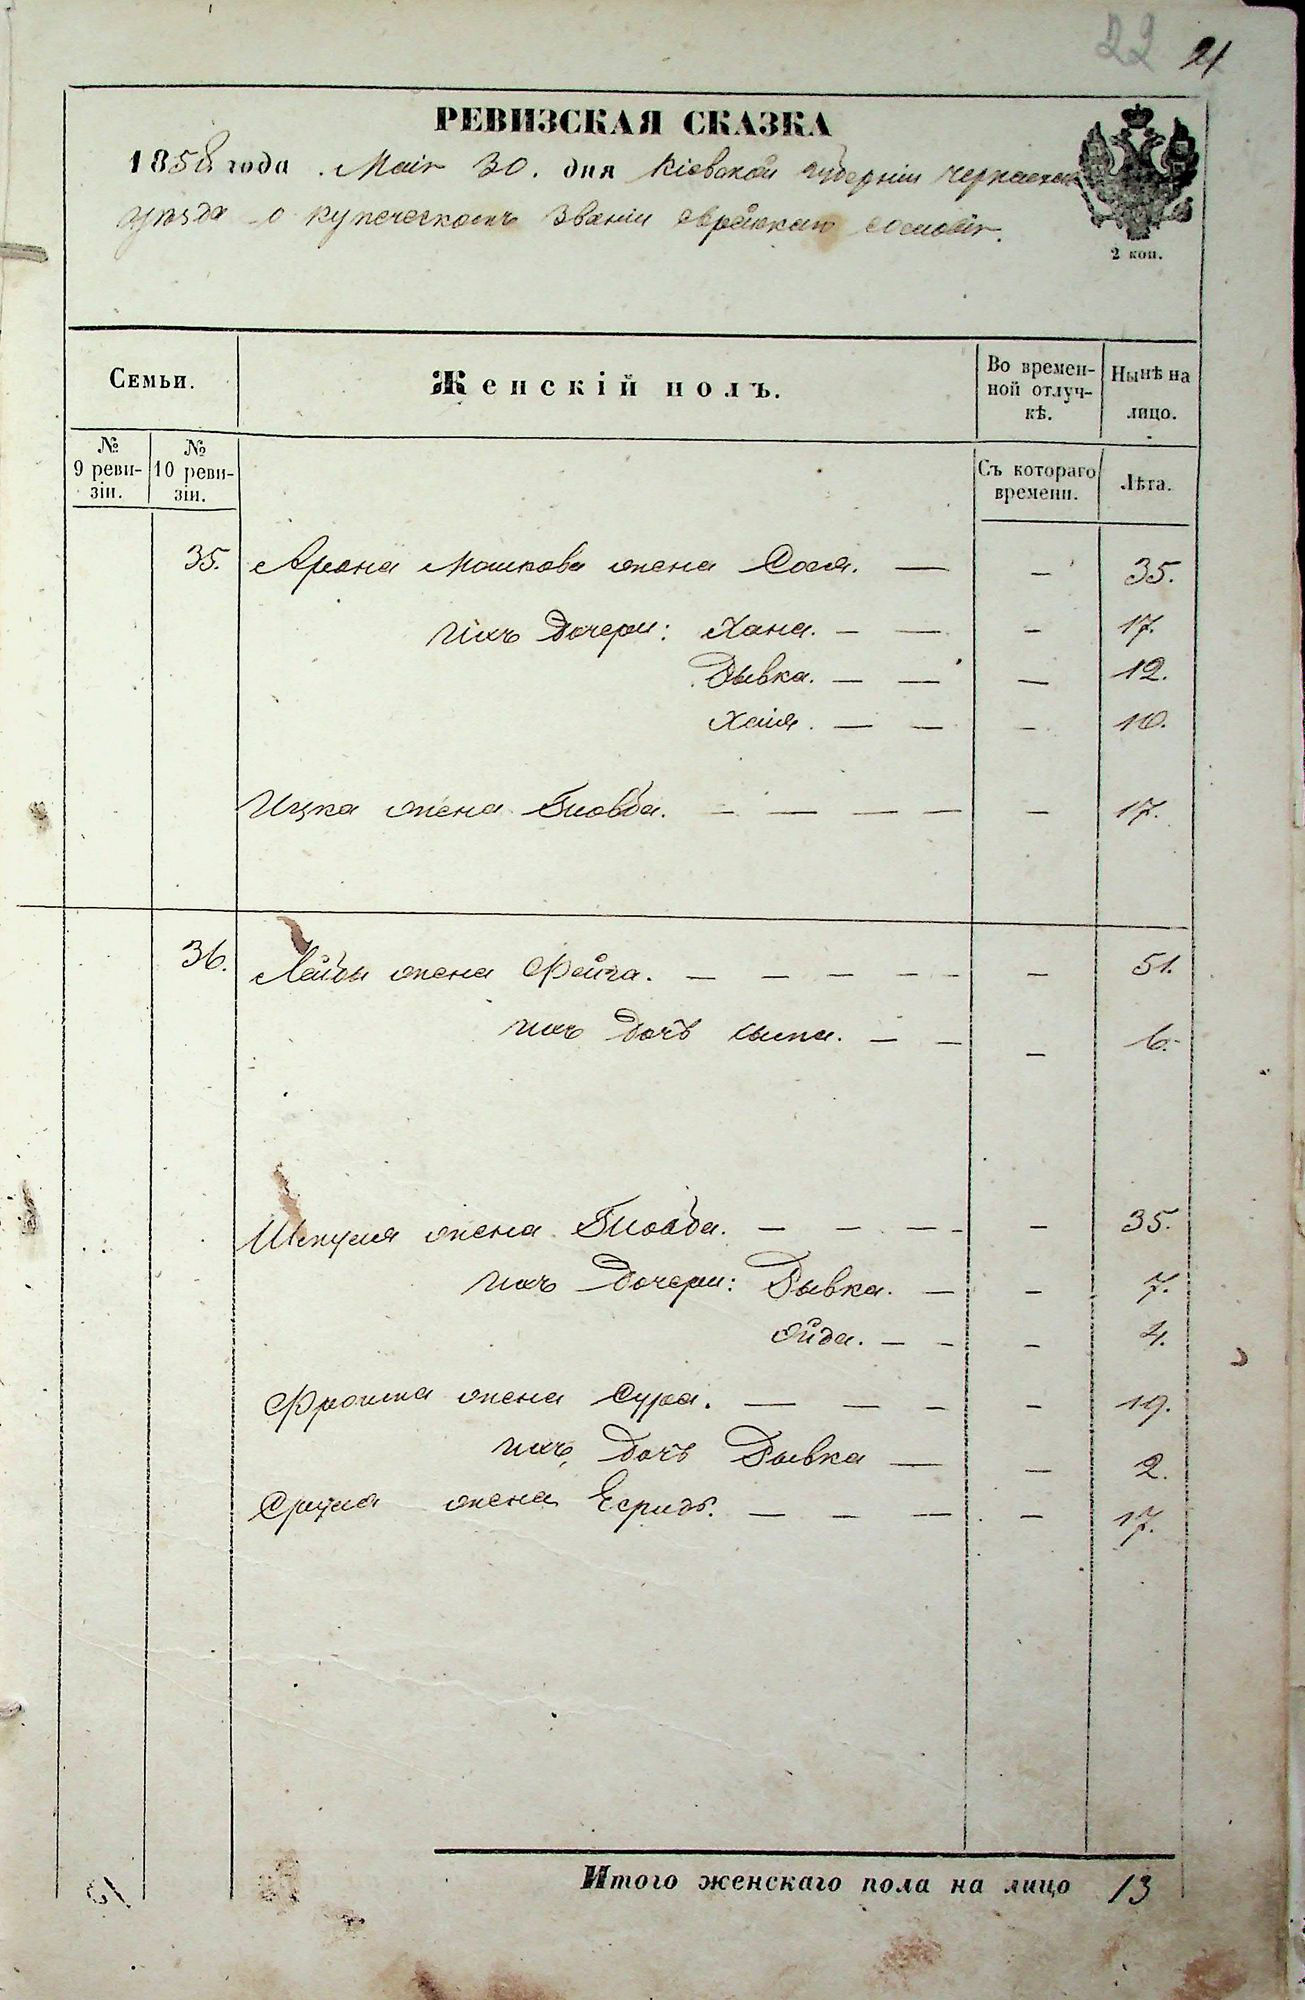 22 21
РЕВИЗСКАЯ СКАЗКА
1858 года Маія 30. дня Кіевской губерніи черкаскаго
уѣзда о купеческомъ званіи еврейскаго сословія.
2 коп.
Семьи.
Женскій полъ.
Во времен-
ной отлуч-
кѣ.
Нынѣ на
лицо.
№
9 реви-
зіи.
№
10 реви-
зіи.
Съ котораго
времени.
Лѣта.
35. Арона Мошкова жена Сося. — — 35.
Ихъ дочери: Хана. — — — 17.
Рывка. — — — 12.
Хаія. — — — 10.
Ицка жена Гловба. — — — — — 17.
36. Лейбы жена Фейга. — — — — — — 51.
Ихъ дочь Сыма. — — — 6.
Шмуля жена Гловба. — — — — — 35.
Ихъ дочери: Рывка. — — 7.
Ойда. — — — 4.
Фроима жена Сура. — — — — 19.
Ихъ дочь Рывка — — 2.
Сруля жена Есридъ. — — — — 17.
Итого женскаго пола на лицо 13